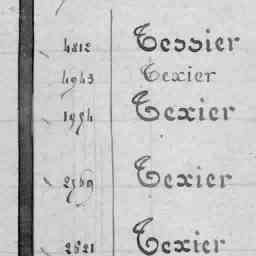 4812 Tessier
4943 Texier
1954 Texier
2569 Texier
2821 Texier